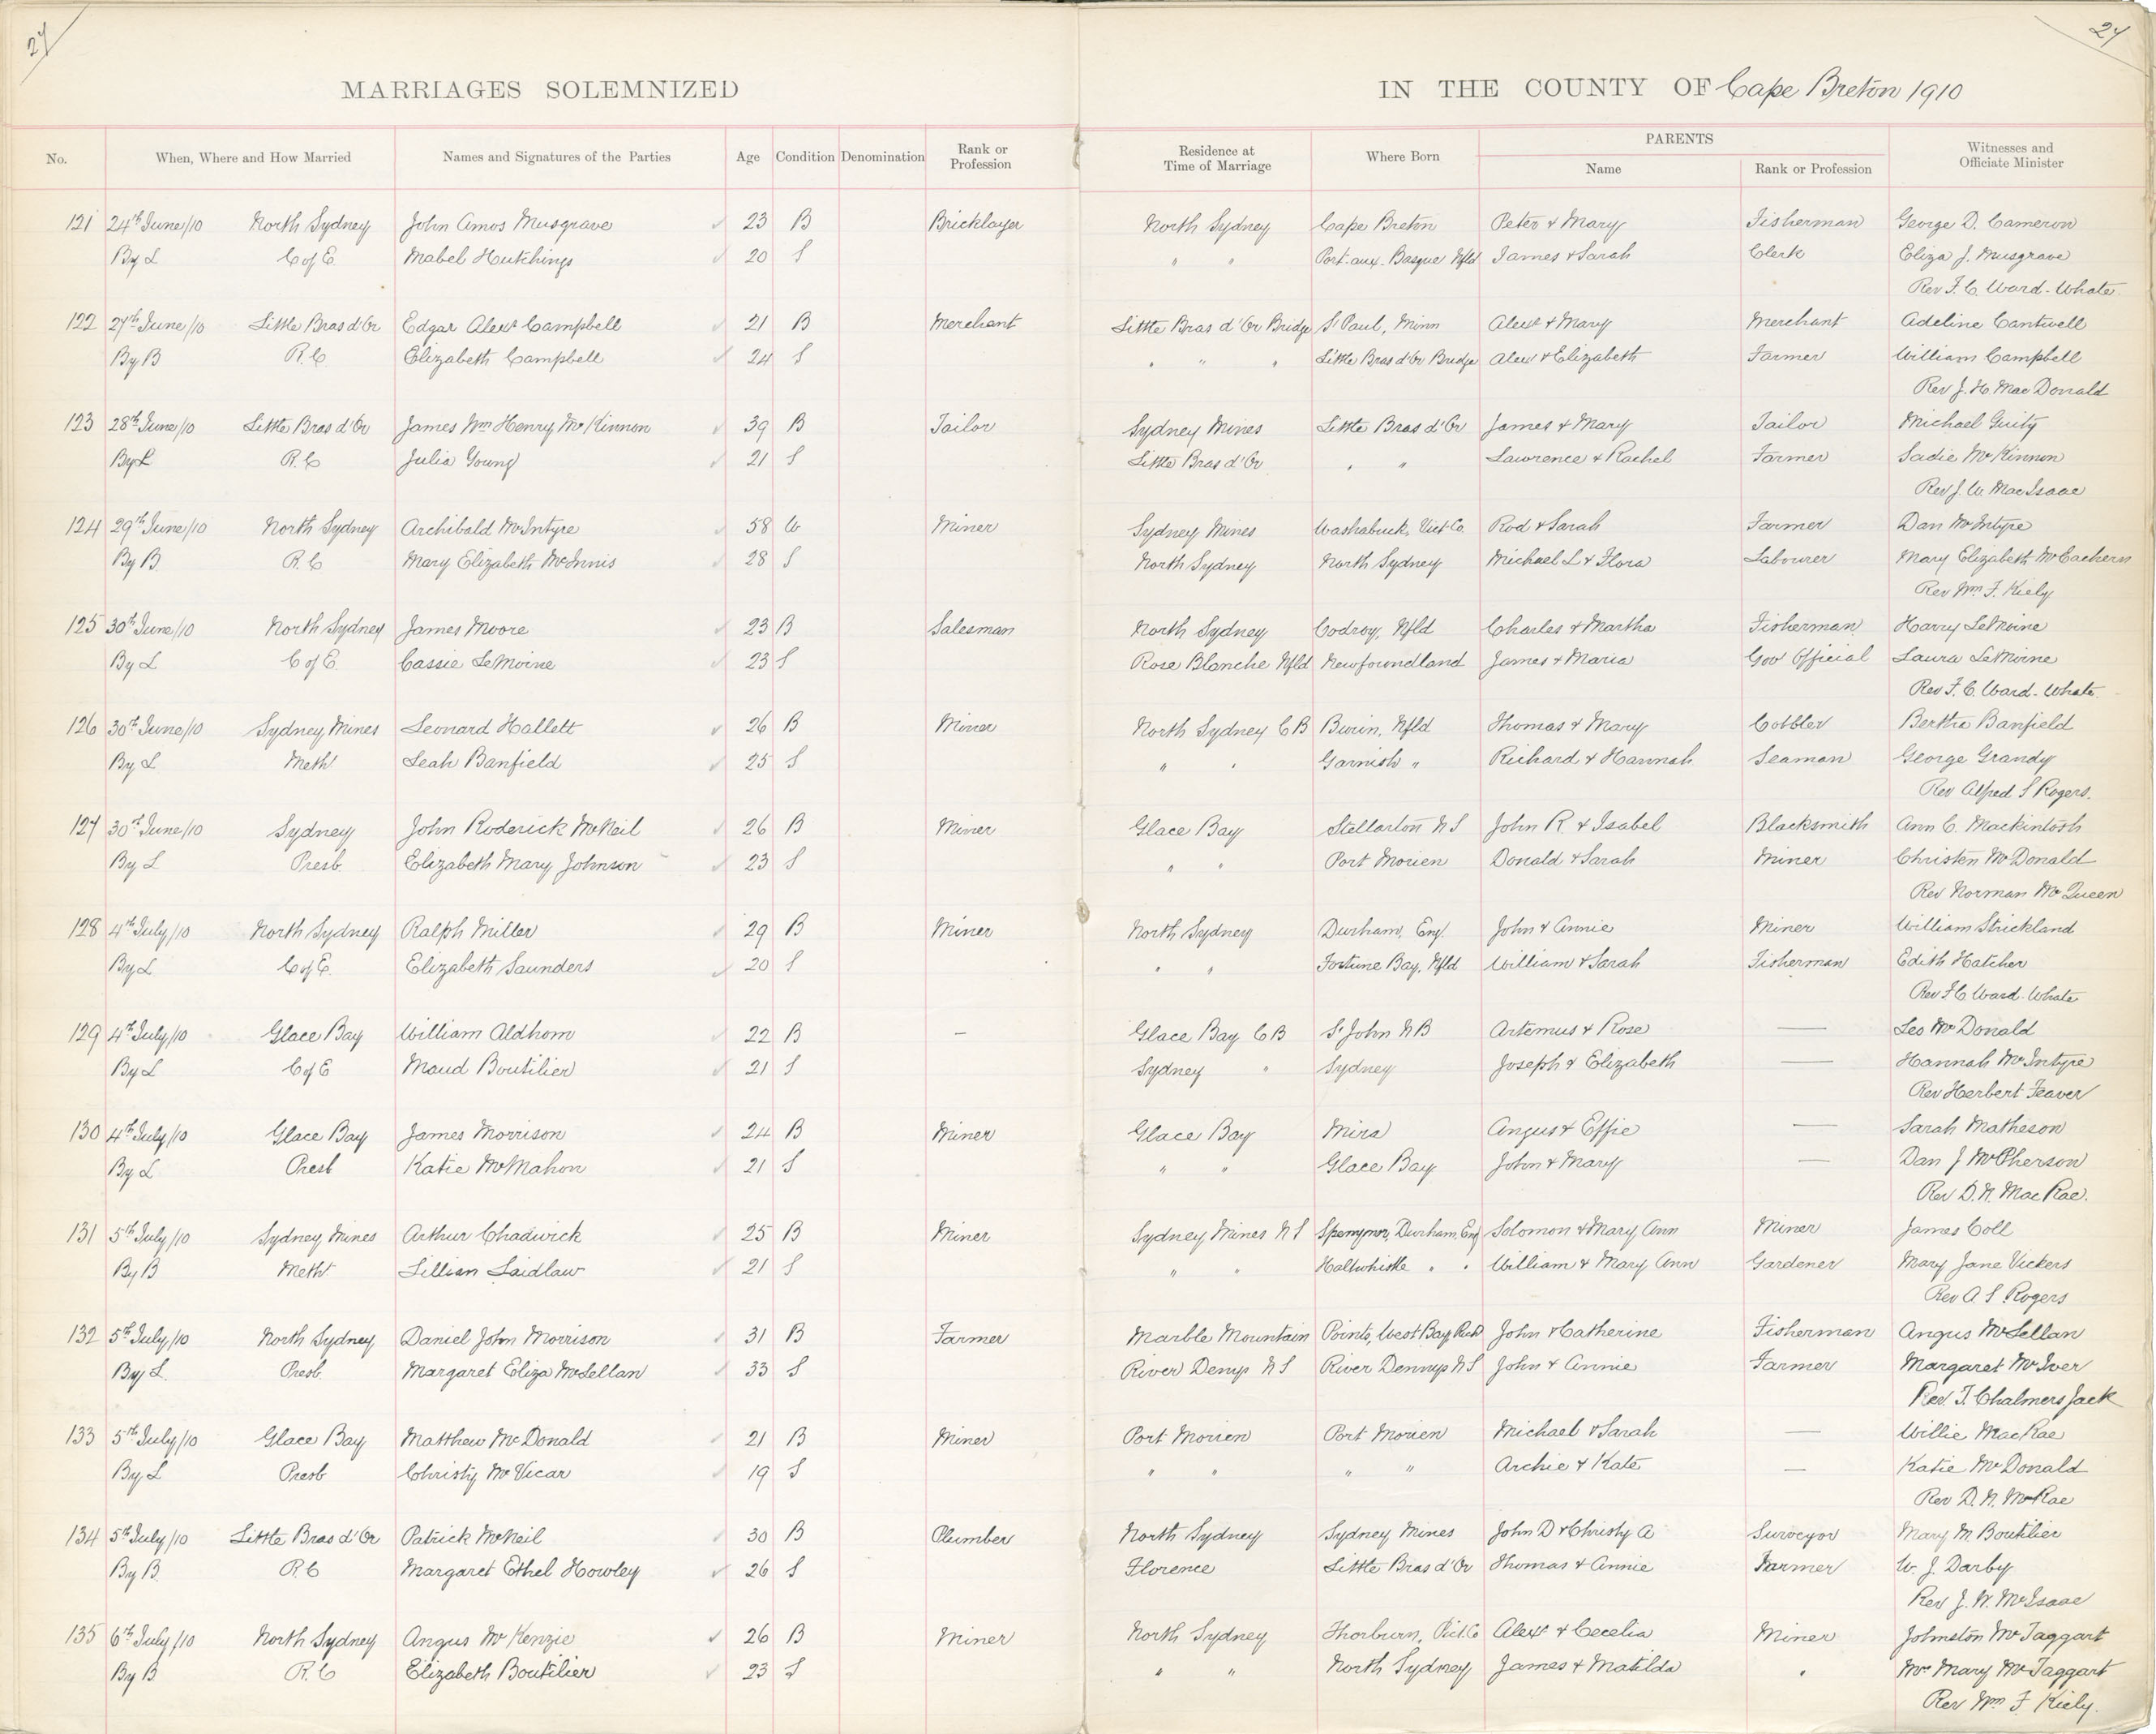 27
27
MARRIAGES SOLEMNIZED
IN THE COUNTY OF Cape Breton 1910
No. When, Where and How Married Names and Signatures of the Parties Age Condition Denomination Rank or Profession Residence at Time of Marriage Where Born PARENTS Name Rank or Profession Witnesses and Officiate Minister
121 24th June/10 North Sydney John Amos Musgrave 23 B Bricklayer North Sydney Cape Breton Peter & Mary Fisherman George D. Cameron
By L C of E. Mabel Hutchings 20 S " " Port-aux-Basque Nfld James & Sarah Clerk Eliza J. Musgrave
Rev F. C. Ward-Whate
122 27th June/10 Little Bras d'Or Edgar Alexr Campbell 21 B Merchant Little Bras d'Or Bridge St Paul, Minn Alexr & Mary Merchant Adeline Cantwell
By B R.C Elizabeth Campbell 24 S " " " Little Bras d'Or Bridge Alex & Elizabeth Farmer William Campbell
Rev J. H. MacDonald
123 28th June/10 Little Bras d'Or James Wm Henry McKinnon 39 B Tailor Sydney Mines Little Bras d'Or James & Mary Tailor Michael Guity
By L R.C Julia Young 21 S Little Bras d'Or " " Lawrence & Rachel Farmer Sadie McKinnon
Rev J. W. MacIsaac
124 29th June/10 North Sydney Archibald McIntyre 58 W Miner Sydney Mines Washabuck, Vict Co. Rod & Sarah Farmer Dan McIntyre
By B R.C Mary Elizabeth McInnis 28 S North Sydney North Sydney Michael L & Flora Labourer Mary Elizabeth McEachern
Rev Wm F. Kiely
125 30th June/10 North Sydney James Moore 23 B Salesman North Sydney Codroy, Nfld Charles & Martha Fisherman Harry LeMoine
By L C of E. Cassie LeMoine 23 S Rose Blanche Nfld Newfoundland James & Maria Gov Official Laura LeMoine
Rev F. C. Ward-Whate
126 30th June/10 Sydney Mines Leonard Hallett 26 B Miner North Sydney C B Burin, Nfld Thomas & Mary Cobbler Bertha Banfield
By L Meth. Leah Banfield 25 S " " Garnish " Richard & Hannah Seaman George Grandy
Rev Alfred S Rogers.
127 30th June/10 Sydney John Roderick McNeil 26 B Miner Glace Bay Stellarton N S John R. & Isabel Blacksmith Ann C. Mackintosh
By L Presb. Elizabeth Mary Johnson 23 S " " Port Morien Donald & Sarah Miner Christen McDonald
Rev Norman McQueen
128 4th July/10 North Sydney Ralph Miller 29 B Miner North Sydney Durham, Eng. John & Annie Miner William Strickland
By L C of E. Elizabeth Saunders 20 S " " Fortune Bay, Nfld William & Sarah Fisherman Edith Hatcher
Rev F C Ward-Whate
129 4th July/10 Glace Bay William Aldhom 22 B — Glace Bay C B St John N B Artemus & Rose — Leo McDonald
By L C of E Maud Boutilier 21 S Sydney " Sydney Joseph & Elizabeth — Hannah McIntyre
Rev Herbert Feaver
130 4th July/10 Glace Bay James Morrison 24 B Miner Glace Bay Mira Angus & Effie — Sarah Matheson
By L Presb Katie McMahon 21 S " " Glace Bay John & Mary — Dan J McPherson
Rev D. N. MacRae.
131 5th July/10 Sydney Mines Arthur Chadwick 25 B Miner Sydney Mines N S Spennymor, Durham, Eng Solomon & Mary Ann Miner James Coll
By B Meth. Lillian Laidlaw 21 S " " Haltwhistle " " William & Mary Ann Gardener Mary Jane Vickers
Rev A. S. Rogers
132 5th July/10 North Sydney Daniel John Morrison 31 B Farmer Marble Mountain Points, West Bay, Rich John & Catherine Fisherman Angus McLellan
By L Presb. Margaret Eliza McLellan 33 S River Denys N S River Dennys N S John & Annie Farmer Margaret McIver
Rev. T. Chalmers Jack
133 5th July/10 Glace Bay Matthew McDonald 21 B Miner Port Morien Port Morien Michael & Sarah — Willie MacRae
By L Presb Christy McVicar 19 S " " " " Archie & Kate — Katie McDonald
Rev D. N. McRae
134 5th July/10 Little Bras d'Or Patrick McNeil 30 B Plumber North Sydney Sydney Mines John D & Christy A Surveyor Mary M. Boutilier
By B. R.C Margaret Ethel Howley 26 S Florence Little Bras d'Or Thomas & Annie Farmer W. J. Darby
Rev J. W. McIsaac
135 6th July/10 North Sydney Angus McKenzie 26 B Miner North Sydney Thorburn, Pict. Co Alexr & Cecelia Miner Johnston McTaggart
By B R.C Elizabeth Boutilier 23 S " " North Sydney James & Matilda " Mrs Mary McTaggart
Rev Wm F. Kiely.